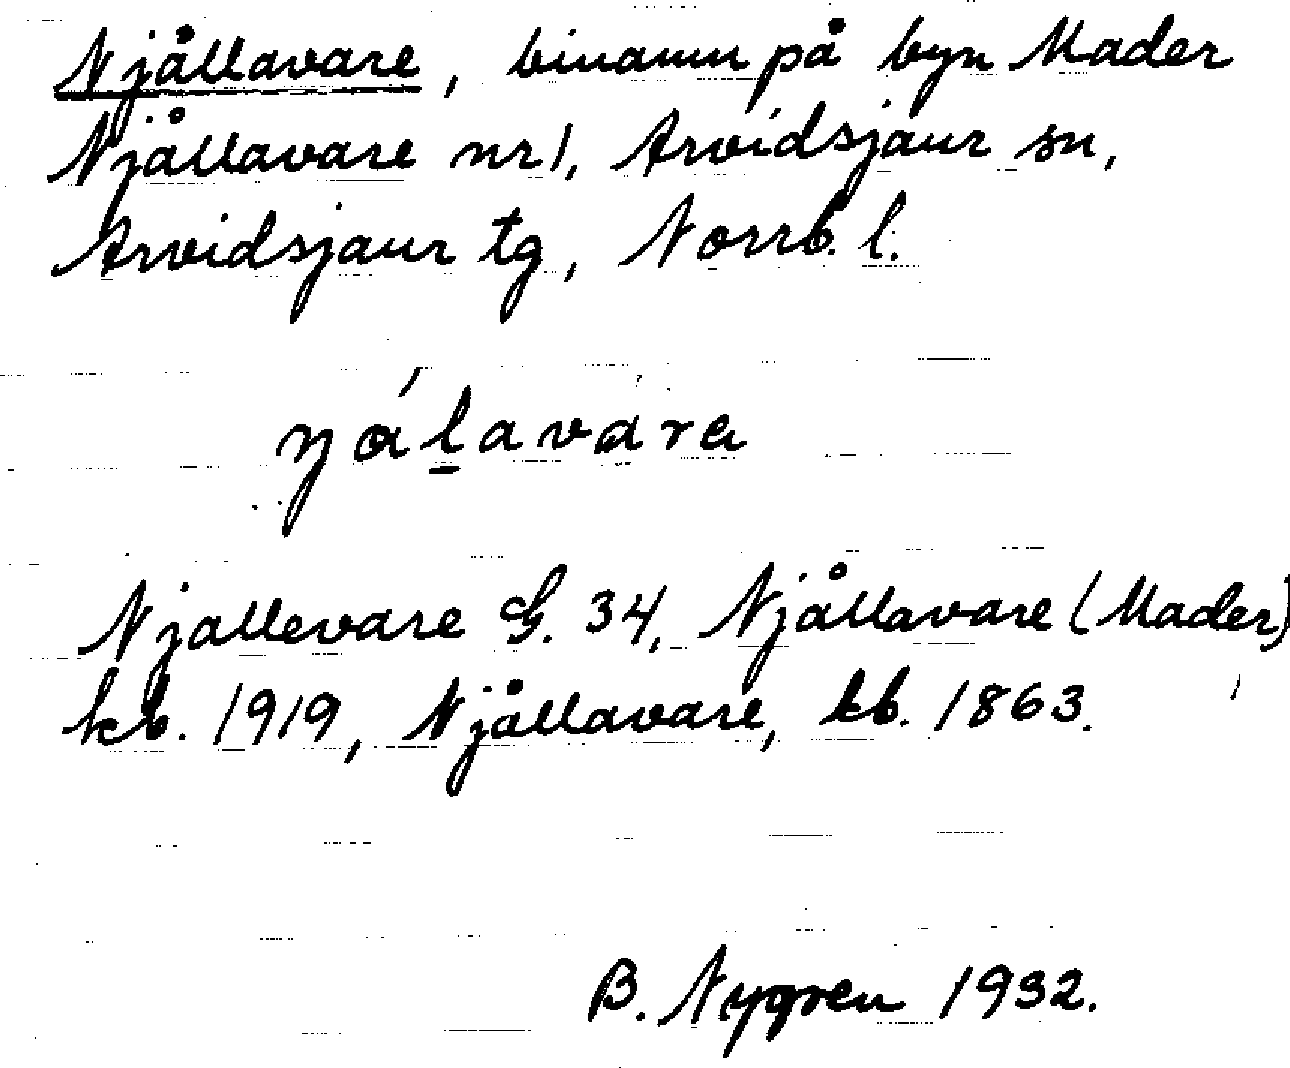 Njållavare, binamn på byn Mader
Njållavare nr 1, Arvidsjaur sn,
Arvidsjaur tg, Norrb. l.
Njallevare G. 34, Njållavare (Mader)
kb. 1919, Njållavare, kb. 1863.
B. Nygren 1932.